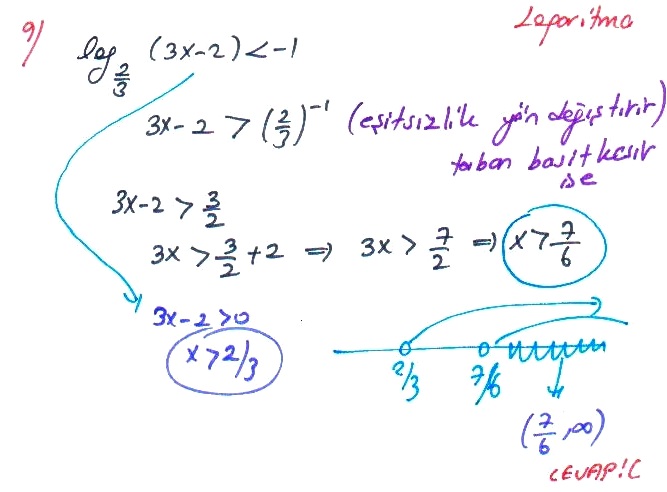 Logaritma
9) log_{2/3} (3x-2) < -1
3x-2 > (2/3)^{-1} (eşitsizlik yön değiştirir)
taban basit kesir
ise
3x-2 > 3/2
3x > 3/2 + 2 ⇒ 3x > 7/2 ⇒ x > 7/6
3x-2 > 0
x > 2/3
2/3 7/6
(7/6, ∞)
CEVAP: C